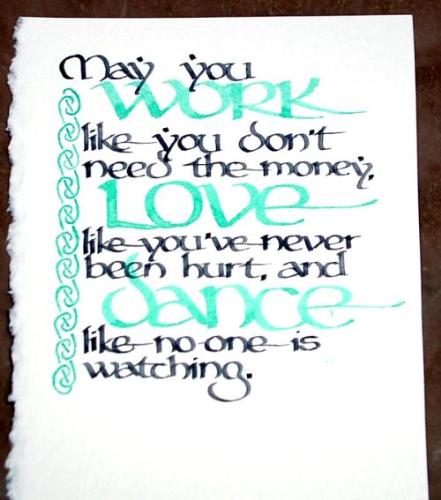 May you
WORK
like you don't
need the money,
LOVE
like you've never
been hurt, and
dance
like no one is
watching.